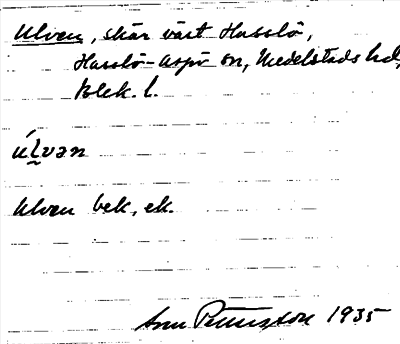 Ulven, skär väst Hasslö,
Hasslö-Aspö sn, Medelstads hd,
Blek. l.
úl̰vən
Ulven bek, ek.
Pettersson 1935